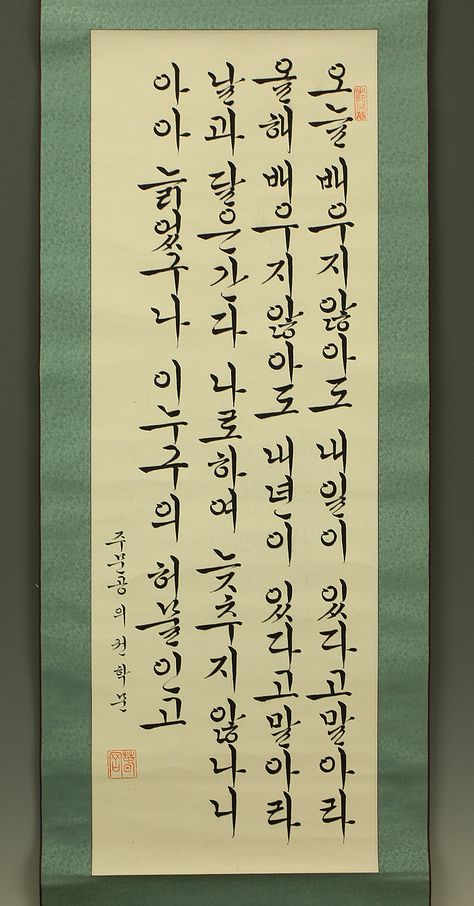 오늘 배우지않아도 내일이 있다고말아라
올해 배우지않아도 내년이 있다고말아라
날과 달은간다 나로하여 늦추지 않나니
아아 늙었구나 이누구의 허물인고
주문공의 권학문